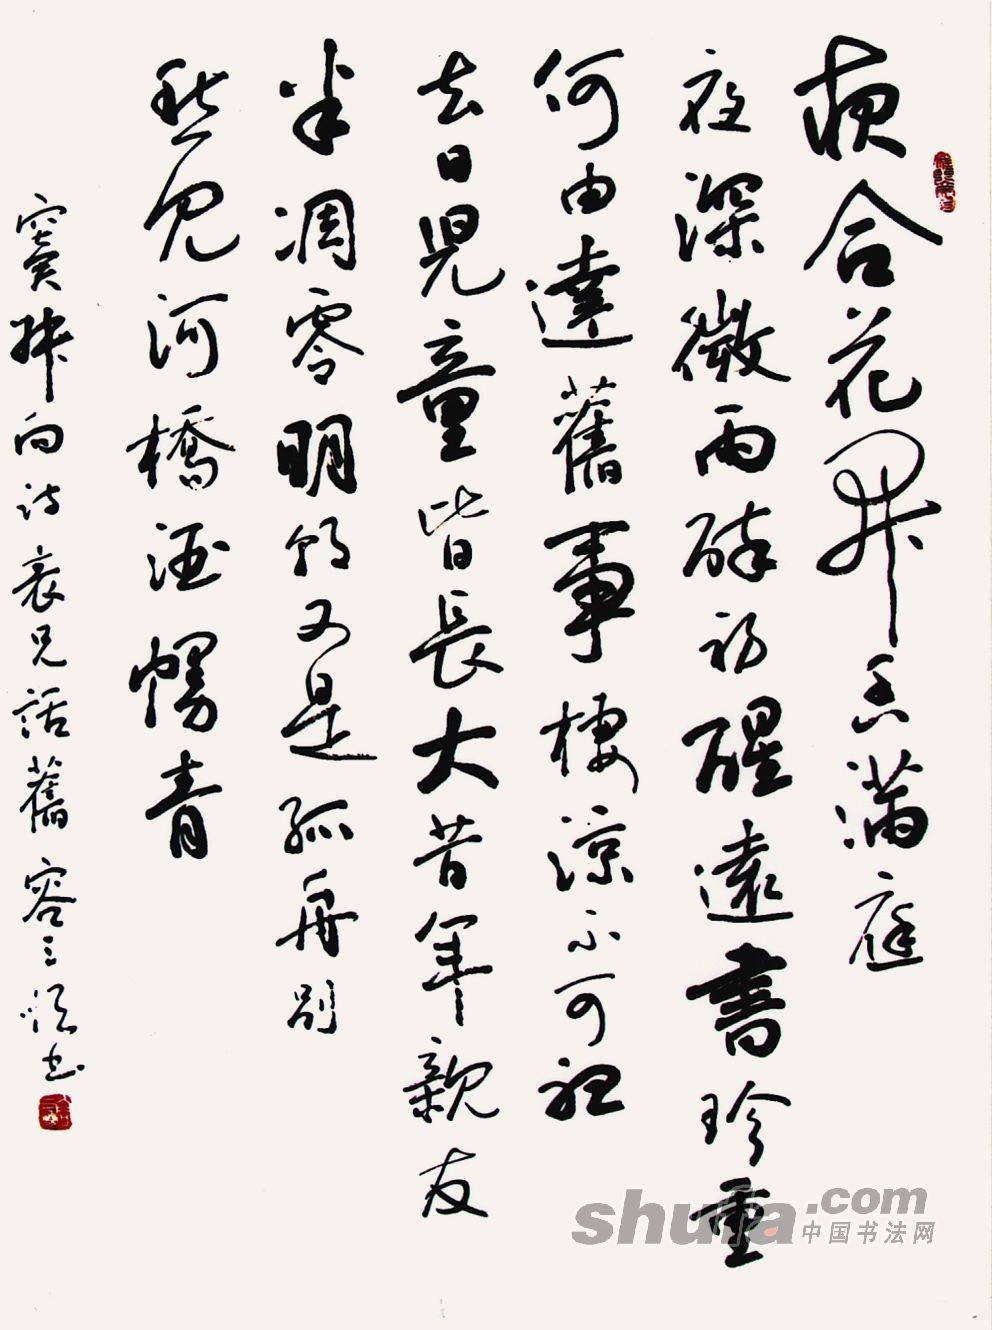 夜合花開香满庭
夜深微雨醉初醒遠書珍重
何由達舊事棲涼不可聽
去日兒童皆長大昔年親友
半凋零明朝又是孤舟別
愁見河橋酒幔青
竇叔向詩表兄話舊 容书
shufa.com
中国书法网